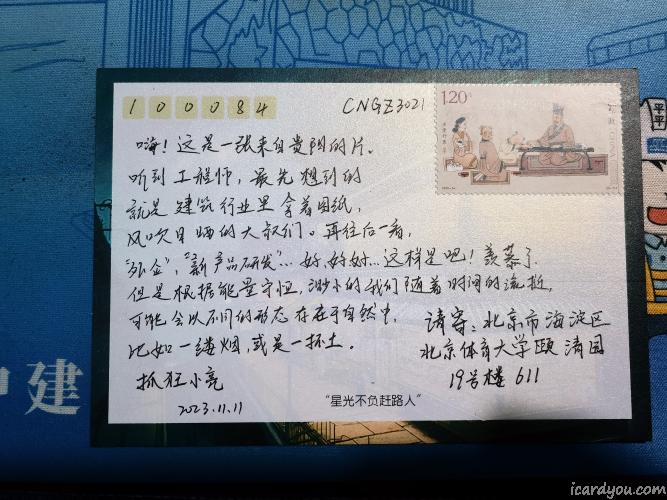 100084
CNGZ3021
120分
嗨！这是一张来自贵阳的片。
听到工程师，最先想到的
就是建筑行业里拿着图纸，
风吹日晒的大叔们。再往后一看，
"弘金"，"新产品研发"…好,好,好…这样是吧！羡慕了
但是根据能量守恒，渺小的我们随着时间的流逝，
可能会以不同的形态存在于自然中，
比如一缕烟，或是一抔土。
抓狂小亮
2023.11.11
请寄：北京市海淀区
北京体育大学颐清园
19号楼 611
"星光不负赶路人"
中建
icardyou.com